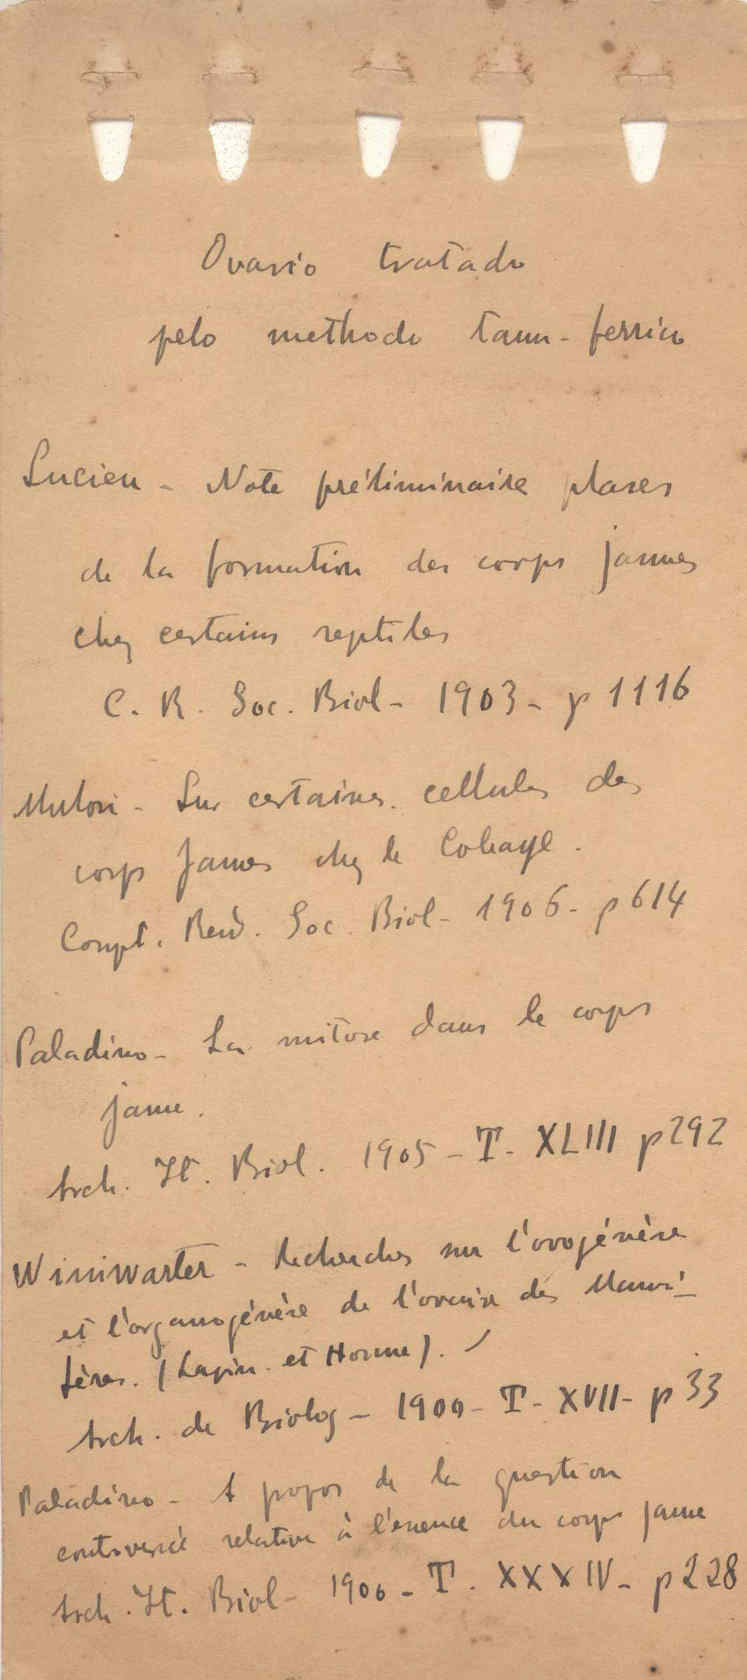 Ovario tratado
pelo methodo tann-ferrico
Lucien - Note préliminaire phases
de la formation des corps jaunes
chez certains reptiles
C. R. Soc. Biol - 1903 - p 1116
Mulon - Sur certaines cellules des
corps jaunes chez le Cobaye.
Compt. Rend. Soc. Biol - 1906 - p 614
Paladino - La mitose dans le corps
jaune.
Arch. It. Biol. 1905 - T. XLIII p 292
Winiwarter - Recherches sur l'ovogénèse
et l'organogénèse de l'ovaire des Mammi-
fères. (Lapin et Homme).
Arch. de Biolog - 1900 - T - XVII - p 33
Paladino - A propos de la question
controversée relative à l'essence du corps jaune
Arch. It. Biol - 1900 - T. XXXIV - p 228